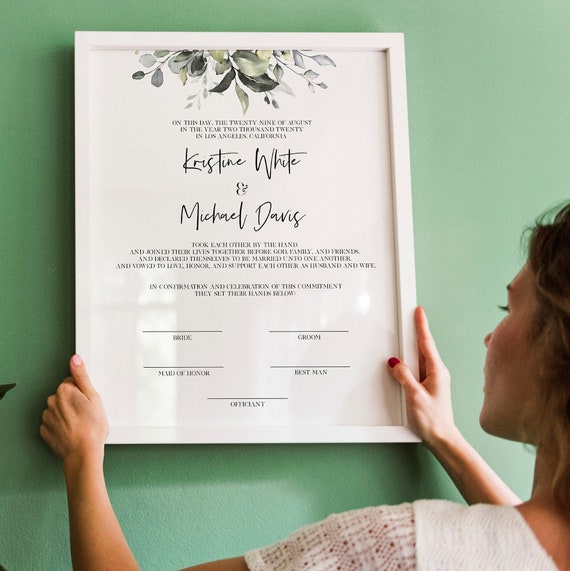 ON THIS DAY, THE TWENTY NINE OF AUGUST
IN THE YEAR TWO THOUSAND TWENTY
IN LOS ANGELES, CALIFORNIA
Kristine White
&
Michael Davis
TOOK EACH OTHER BY THE HAND
AND JOINED THEIR LIVES TOGETHER BEFORE GOD, FAMILY, AND FRIENDS,
AND DECLARED THEMSELVES TO BE MARRIED UNTO ONE ANOTHER,
AND VOWED TO LOVE, HONOR, AND SUPPORT EACH OTHER AS HUSBAND AND WIFE.
IN CONFIRMATION AND CELEBRATION OF THIS COMMITMENT
THEY SET THEIR HANDS BELOW:
BRIDE GROOM
MAID OF HONOR BEST MAN
OFFICIANT